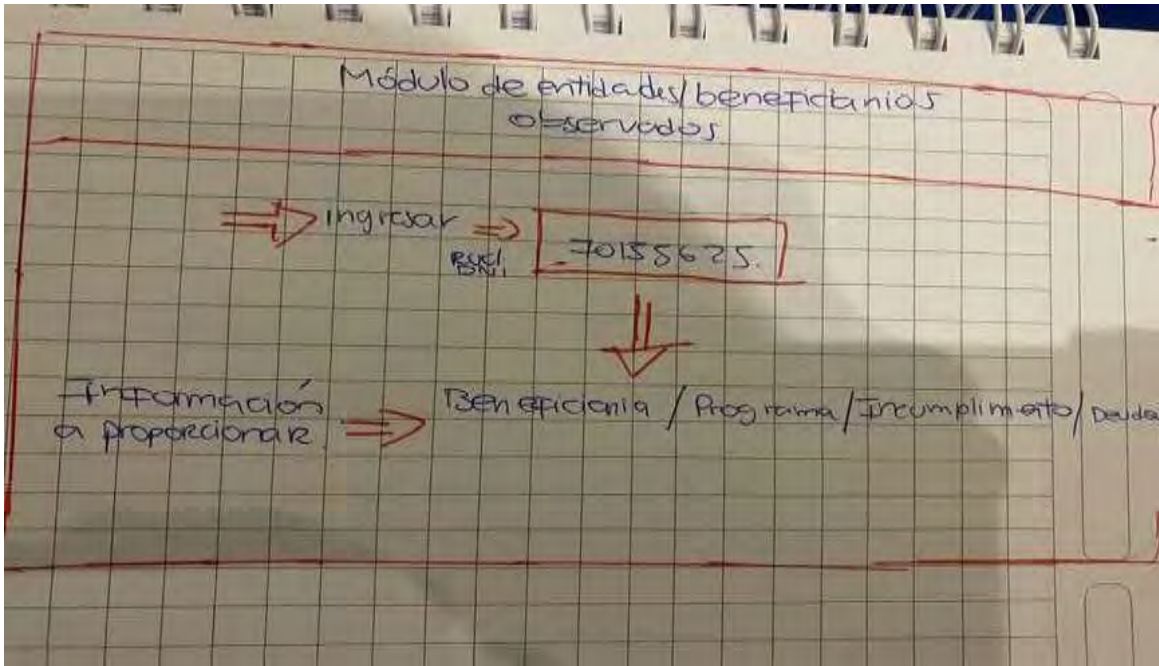 Módulo de entidades/beneficiarios
observados
ingresar
RUC/
DNI
70155625.
Información
a proporcionar
Beneficiaria / Programa / Incumplimiento / Deuda